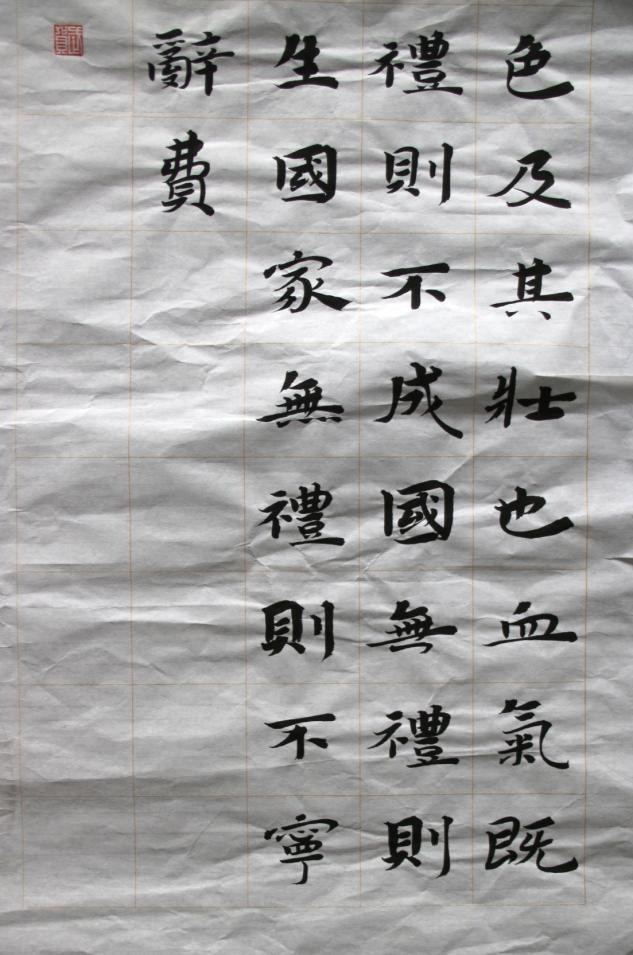 色及其壯也血氣既
禮則不成國無禮則
生國家無禮則不寧
辭費